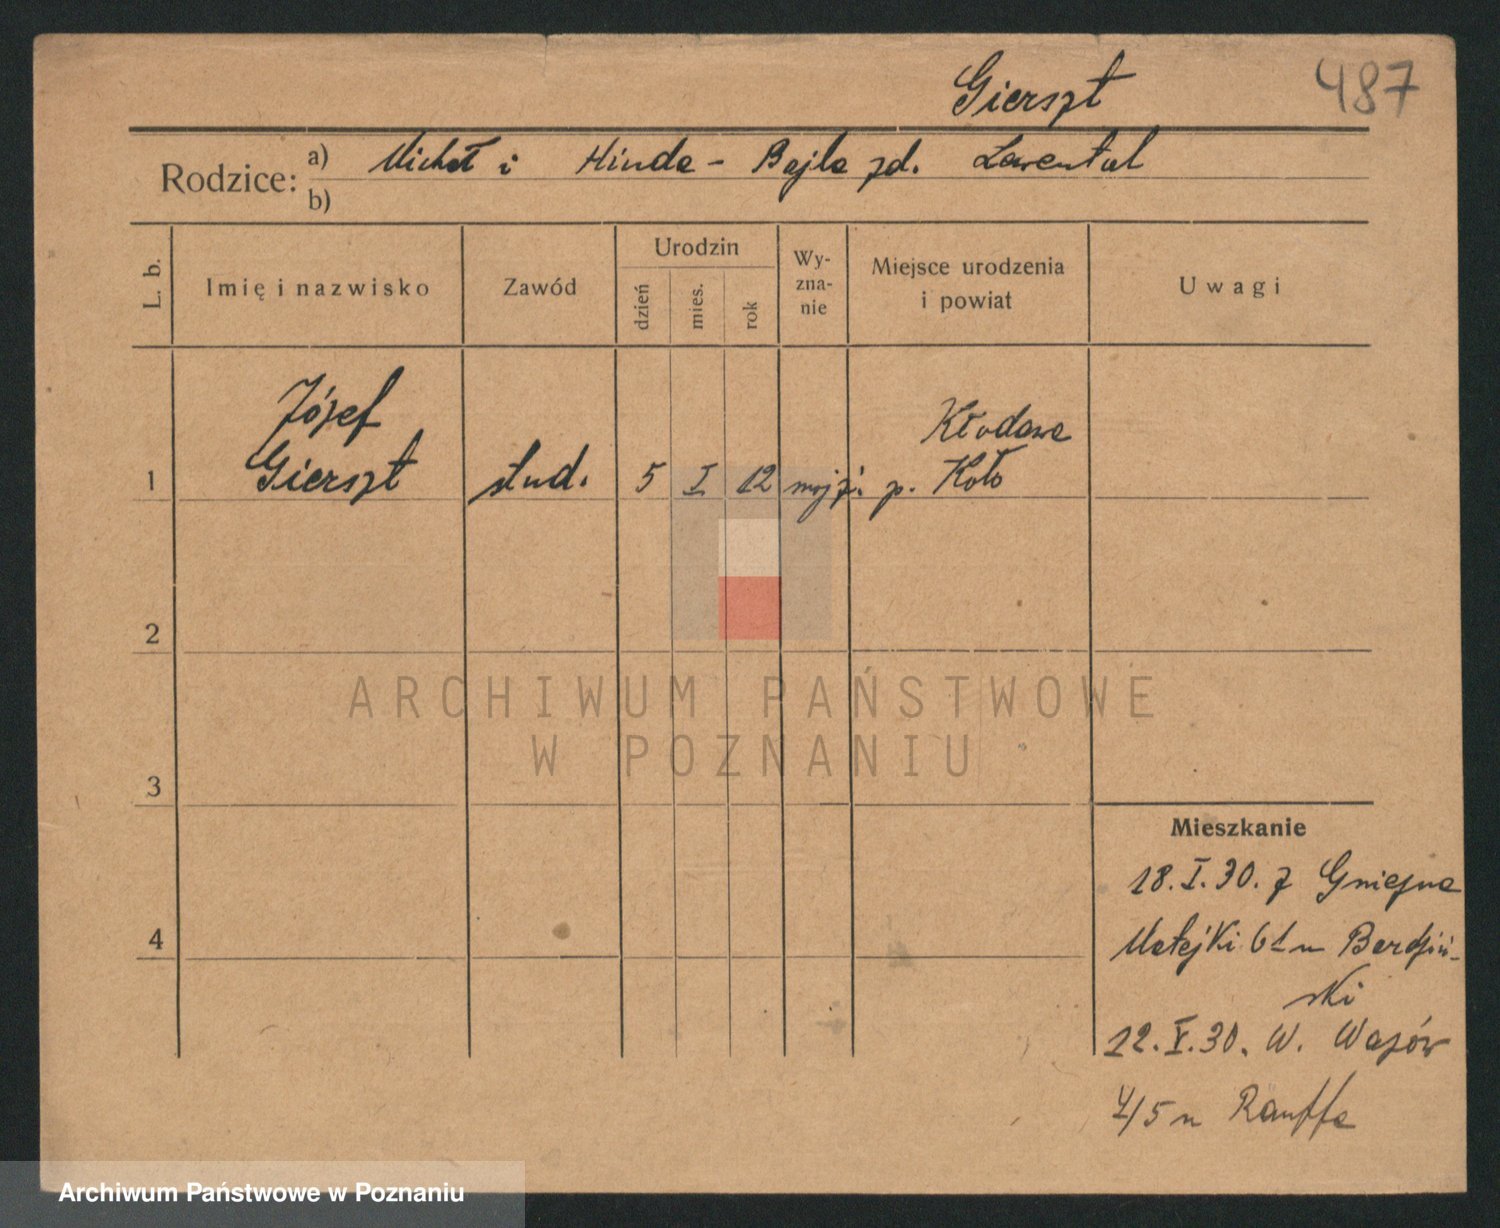 Gierszt
487
Rodzice: a) Michał i Hinda - Bajla zd. Lawental
b)
L. b.
Imię i nazwisko
Zawód
Urodzin
dzień
mies.
rok
Wy-
zna-
nie
Miejsce urodzenia
i powiat
Uwagi
Józef
Gierszt
1
stud.
5 I 12
mojż.
Kłodawa
p. Koło
2
3
4
ARCHIWUM PAŃSTWOWE
W POZNANIU
Mieszkanie
18.I.30. z Gniezna
Matejki 61 u Bardziń-
ski
12.V.30. W. Wazów
4/5 u Rauffa
Archiwum Państwowe w Poznaniu